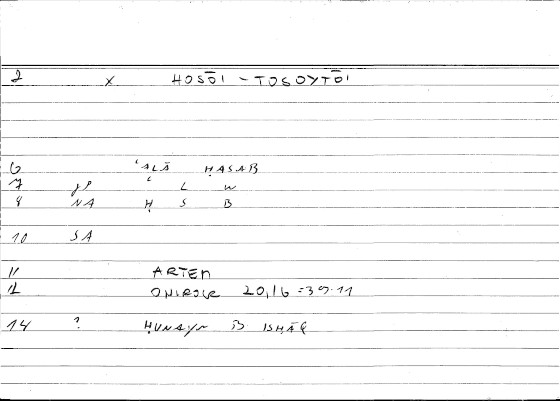 2 x HOSŌI - TOSOYTŌI
6 ʿALĀ ḤASAB
7 gP ʿ L W
8 NA Ḥ S B
10 SA
11 ARTEM
12 ONIROCR 20,16 = 39.11
14 ? ḤUNAYN B ISḤĀQ